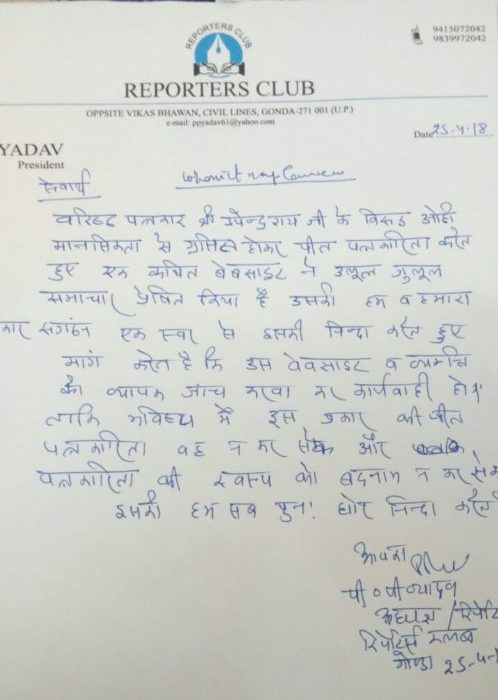 REPORTERS CLUB
9415072042
9839972042
REPORTERS CLUB
OPPSITE VIKAS BHAWAN, CIVIL LINES, GONDA-271 001 (U.P.)
e-mail: ppyadav61@yahoo.com
Date 25-4-18
YADAV
President
सेवार्थ whom it may Concern
वरिष्ठ पत्रकार श्री उपेन्द्र राय जी के विरूद्ध ओछी
मानसिकता से ग्रसित होकर पीत पत्रकारिता करते
हुए एक कथित बेबसाइट ने उलूल जुलूल
समाचार प्रेषित किया है उसकी हम व हमारा
कार संगठन एक स्वर से इसकी निन्दा करते हुए
मांग करते है कि उस वेवसाइट व व्यक्ति
की व्यापक जांच करवा कर कार्यवाही हो।
ताकि भविष्य में इस प्रकार की पीत
पत्रकारिता वह न कर सके और
पत्रकारिता की स्वरूप को बदनाम न कर सके
इसकी हम सब पुनः घोर निन्दा करते
आपका
पी० पी० यादव
अध्यक्ष / रिपोर्ट
रिपोर्टर्स क्लब
गोण्डा 25-4-1